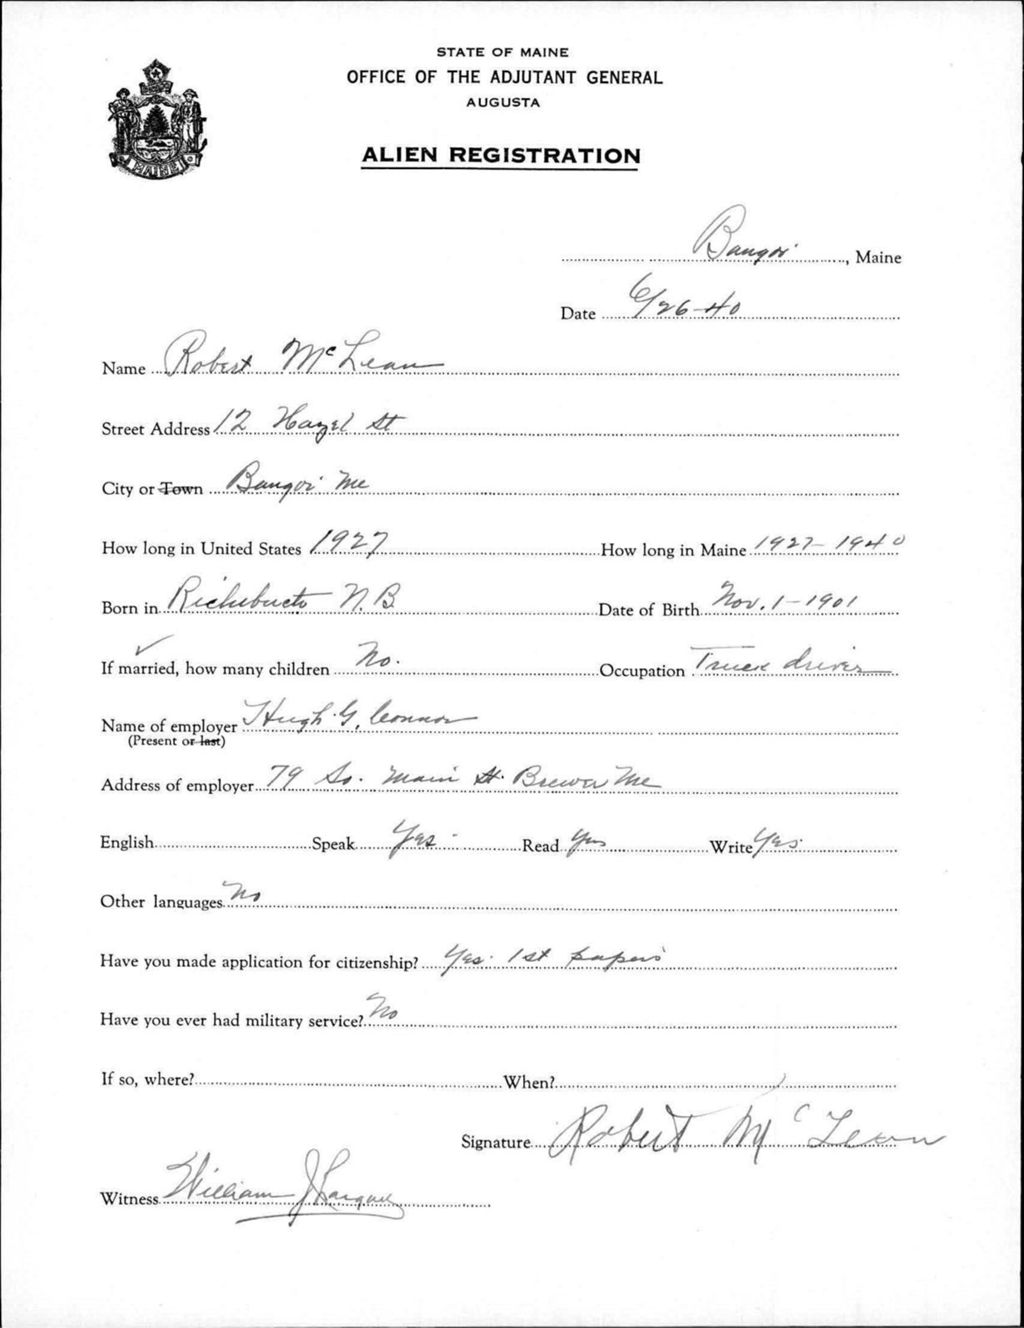 STATE OF MAINE
OFFICE OF THE ADJUTANT GENERAL
AUGUSTA
ALIEN REGISTRATION
MAINE
Bangor, Maine
Date 6/26-40
Name Robert McLean
Street Address 12 Hazel St
City or Town Bangor Me
How long in United States 1927 How long in Maine 1927-1940
Born in Richibucto N.B. Date of Birth Nov. 1-1901
If married, how many children No. Occupation Truck driver
Name of employer Hugh G. Connor
(Present or last)
Address of employer 79 So. Main St. Brewer Me
English Speak Yes Read Yes Write Yes
Other languages No
Have you made application for citizenship? Yes. 1st papers
Have you ever had military service? No
If so, where? When?
Signature Robert McLean
Witness William J